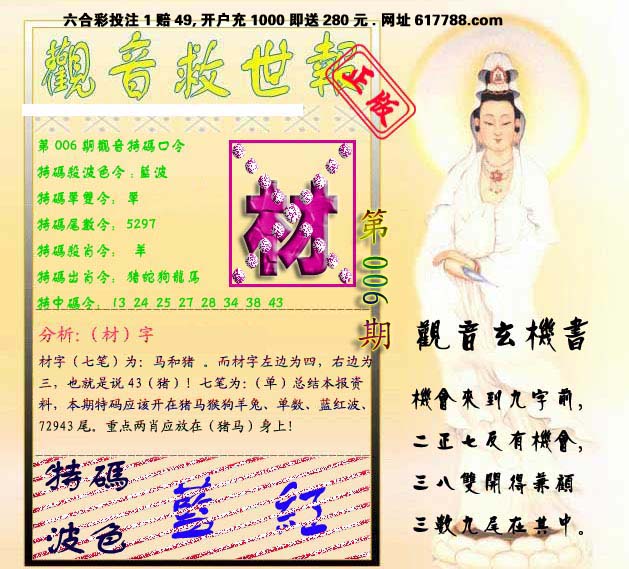 六合彩投注 1 赔 49, 开户充 1000 即送 280 元 . 网址 617788.com
觀音救世報
正版
第 006 期觀音特碼口令
特碼殺波色令 : 藍波
特碼單雙令 : 單
特碼尾數令 : 5297
特碼殺肖令 : 羊
特碼出肖令 : 猪蛇狗龍馬
特中碼令 : 13 24 25 27 28 34 38 43
材
第006期
分析:（材）字
材字（七笔）为：马和猪 。而材字左边为四，右边为
三，也就是说 43（猪）！七笔为:（单）总结本报资
料，本期特码应该开在猪马猴狗羊兔、单数、蓝红波、
72943 尾。重点两肖应放在（猪马）身上!
特碼
波色
藍 紅
觀音玄機書
機會來到九字前,
二正七反有機會,
三八雙開得兼顧
三數九尾在其中。